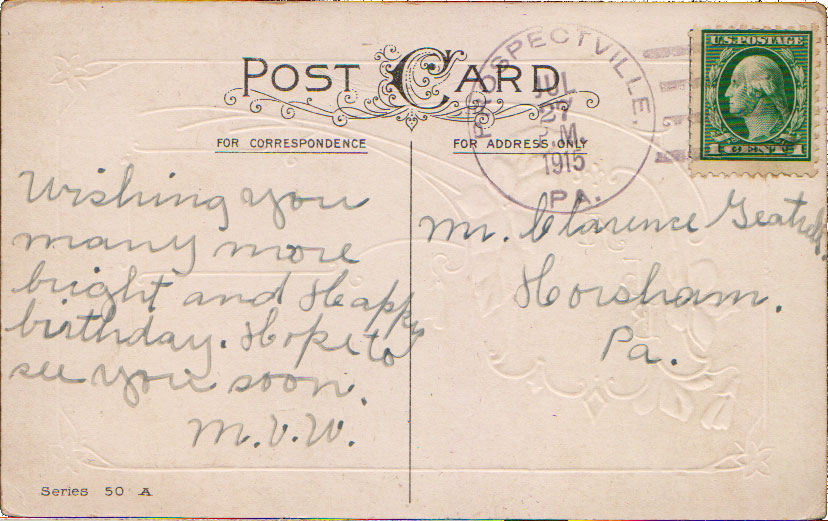 POST CARD
FOR CORRESPONDENCE
FOR ADDRESS ONLY
PROSPECTVILLE,
JUL
27
M.
1915
PA.
U.S. POSTAGE
1 CENT 1
Wishing you
many more
bright and Happy
birthday. Hope to
see you soon.
M.V.W.
Mr. Clarence
Horsham.
Pa.
Series 50 A